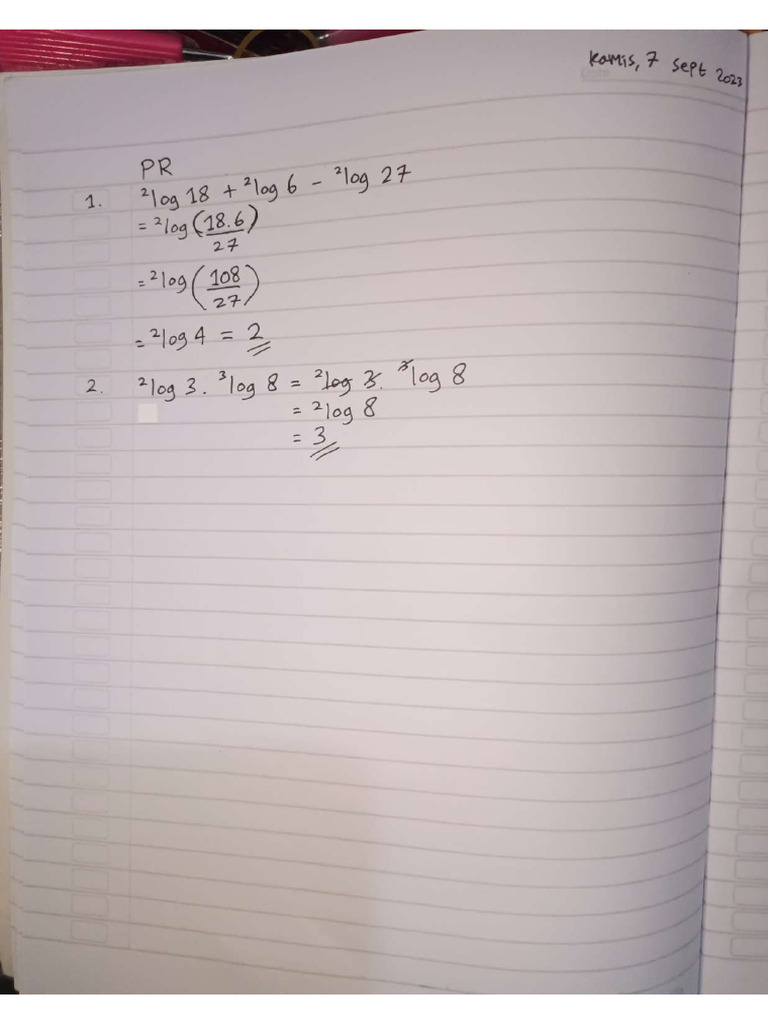 Kamis, 7 sept 2023
PR
1. ²log 18 + ²log 6 - ²log 27
= ²log (18.6/27)
= ²log (108/27)
= ²log 4 = 2
2. ²log 3 . ³log 8 = ²log 3 . ³log 8
= ²log 8
= 3